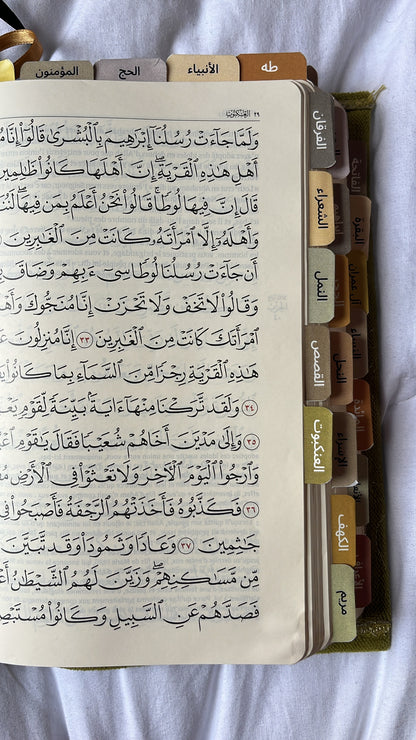 طه
الأنبياء
الحج
المؤمنون
العنكبوت ٢٩
وَلَمَّا جَآءَتْ رُسُلُنَآ إِبْرَٰهِيمَ بِٱلْبُشْرَىٰ قَالُوٓا۟ إِنَّا
أَهْلِ هَٰذِهِ ٱلْقَرْيَةِ ۖ إِنَّ أَهْلَهَا كَانُوا۟ ظَٰلِمِينَ
قَالَ إِنَّ فِيهَا لُوطًا ۚ قَالُوا۟ نَحْنُ أَعْلَمُ بِمَن فِيهَا ۖ
وَأَهْلَهُۥٓ إِلَّا ٱمْرَأَتَهُۥ كَانَتْ مِنَ ٱلْغَٰبِرِينَ
أَن جَآءَتْ رُسُلُنَا لُوطًا سِىٓءَ بِهِمْ وَضَاقَ
وَقَالُوا۟ لَا تَخَفْ وَلَا تَحْزَنْ ۖ إِنَّا مُنَجُّوكَ
ٱمْرَأَتَكَ كَانَتْ مِنَ ٱلْغَٰبِرِينَ ٣٣ إِنَّا مُنزِلُونَ
هَٰذِهِ ٱلْقَرْيَةِ رِجْزًا مِّنَ ٱلسَّمَآءِ بِمَا كَانُوا۟
٣٤ وَلَقَد تَّرَكْنَا مِنْهَآ ءَايَةًۢ بَيِّنَةً لِّقَوْمٍ
٣٥ وَإِلَىٰ مَدْيَنَ أَخَاهُمْ شُعَيْبًا فَقَالَ يَٰقَوْمِ
وَٱرْجُوا۟ ٱلْيَوْمَ ٱلْءَاخِرَ وَلَا تَعْثَوْا۟ فِى ٱلْأَرْضِ
٣٦ فَكَذَّبُوهُ فَأَخَذَتْهُمُ ٱلرَّجْفَةُ فَأَصْبَحُوا۟ فِى
جَٰثِمِينَ ٣٧ وَعَادًا وَثَمُودَا۟ وَقَد تَّبَيَّنَ
مِّن مَّسَٰكِنِهِمْ ۖ وَزَيَّنَ لَهُمُ ٱلشَّيْطَٰنُ
فَصَدَّهُمْ عَنِ ٱلسَّبِيلِ وَكَانُوا۟
الفرقان
الشعراء
النمل
القصص
العنكبوت
الكهف
مريم
الفاتحة
البقرة
آل عمران
النساء
النحل
المائدة
الإسراء